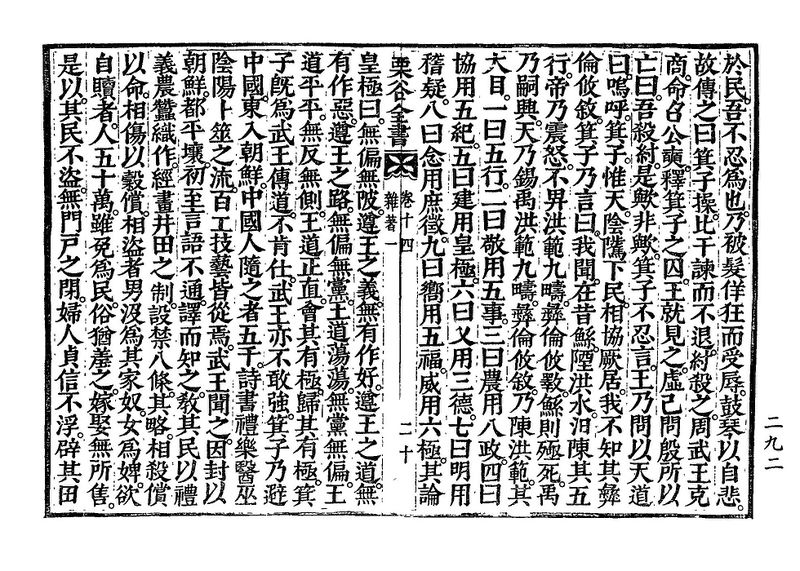 於民。吾不忍爲也。乃被髮佯狂而受辱。鼓琴以自悲。
故傳之曰箕子操。比干諫而不退。紂殺之。周武王克
商。命召公奭。釋箕子之囚。王就見之。虛己問殷所以
亡曰。吾殺紂是歟非歟。箕子不忍言。王乃問以天道
曰。嗚呼。箕子。惟天陰騭下民。相協厥居。我不知其彝
倫攸敘。箕子乃言曰。我聞在昔。鯀陻洪水。汩陳其五
行。帝乃震怒。不畀洪範九疇。彝倫攸斁。鯀則殛死。禹
乃嗣興。天乃錫禹洪範九疇。彝倫攸敘。乃陳洪範。其
大目。一曰五行。二曰敬用五事。三曰農用八政。四曰
協用五紀。五曰建用皇極。六曰乂用三德。七曰明用
稽疑。八曰念用庶徵。九曰嚮用五福。威用六極。其論
栗谷全書 卷十四 雜著一 二十
皇極曰。無偏無陂。遵王之義。無有作好。遵王之道。無
有作惡。遵王之路。無偏無黨。王道蕩蕩。無黨無偏。王
道平平。無反無側。王道正直。會其有極。歸其有極。箕
子旣爲武王傳道。不肯仕。武王亦不敢強。箕子乃避
中國。東入朝鮮。中國人隨之者五千。詩書禮樂醫巫
陰陽卜筮之流。百工技藝皆從焉。武王聞之。因封以
朝鮮。都平壤。初至言語不通。譯而知之。敎其民以禮
義農蠶織作。經畫井田之制。設禁八條。其略。相殺償
以命。相傷以穀償。相盜者男沒爲其家奴。女爲婢。欲
自贖者人五十萬。雖免爲民。俗猶羞之。嫁娶無所售。
是以其民不盜。無門戶之閉。婦人貞信不淫。辟其田
二九二